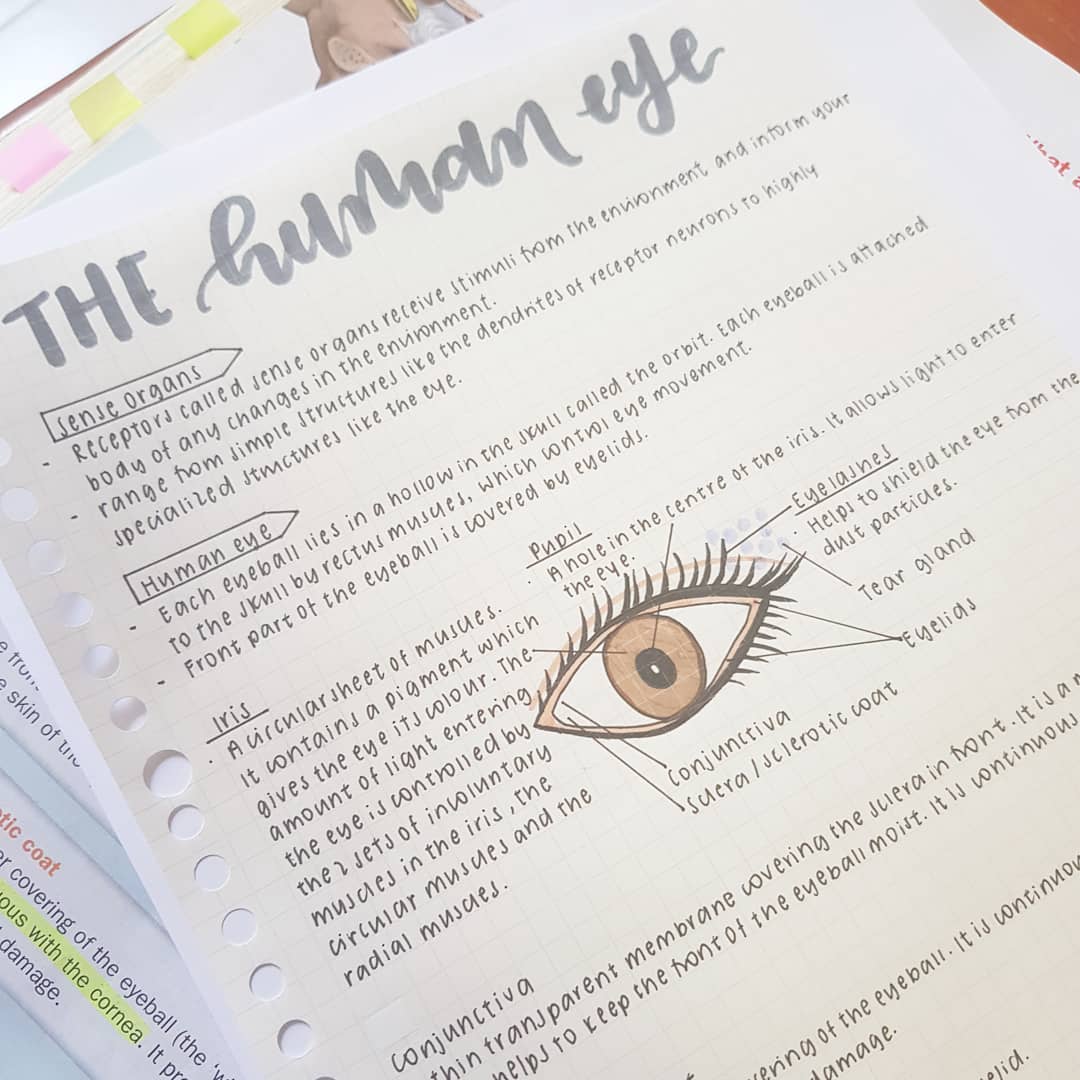 THE human eye
Sense Organs
- Receptors called sense organs receive stimuli from the environment and inform your
body of any changes in the environment.
- range from simple structures like the dendrites of receptor neurons to highly
specialized structures like the eye.
Human eye
- Each eyeball lies in a hollow in the skull called the orbit. Each eyeball is attached
to the skull by rectus muscles, which control eye movement.
- Front part of the eyeball is covered by eyelids.
Pupil
· A hole in the centre of the iris. It allows light to enter
the eye.
Eyelashes
Helps to shield the eye from the
dust particles.
Tear gland
Eyelids
Iris
· A circular sheet of muscles.
It contains a pigment which
gives the eye its colour. The
amount of light entering
the eye is controlled by
the 2 sets of involuntary
muscles in the iris, the
circular muscles and the
radial muscles.
Conjunctiva
Sclera/sclerotic coat
Conjunctiva
thin transparent membrane covering the sclera in front. It is a
helps to keep the front of the eyeball moist. It is continuous
of the eyeball. It is continuous
damage.
skin of
coat
covering of the eyeball (the
with the cornea. It
damage.